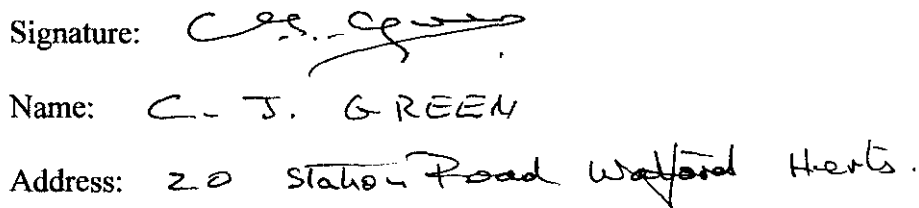 Signature: C.J. Green
Name: C. J. GREEN
Address: 20 Station Road Watford Herts.